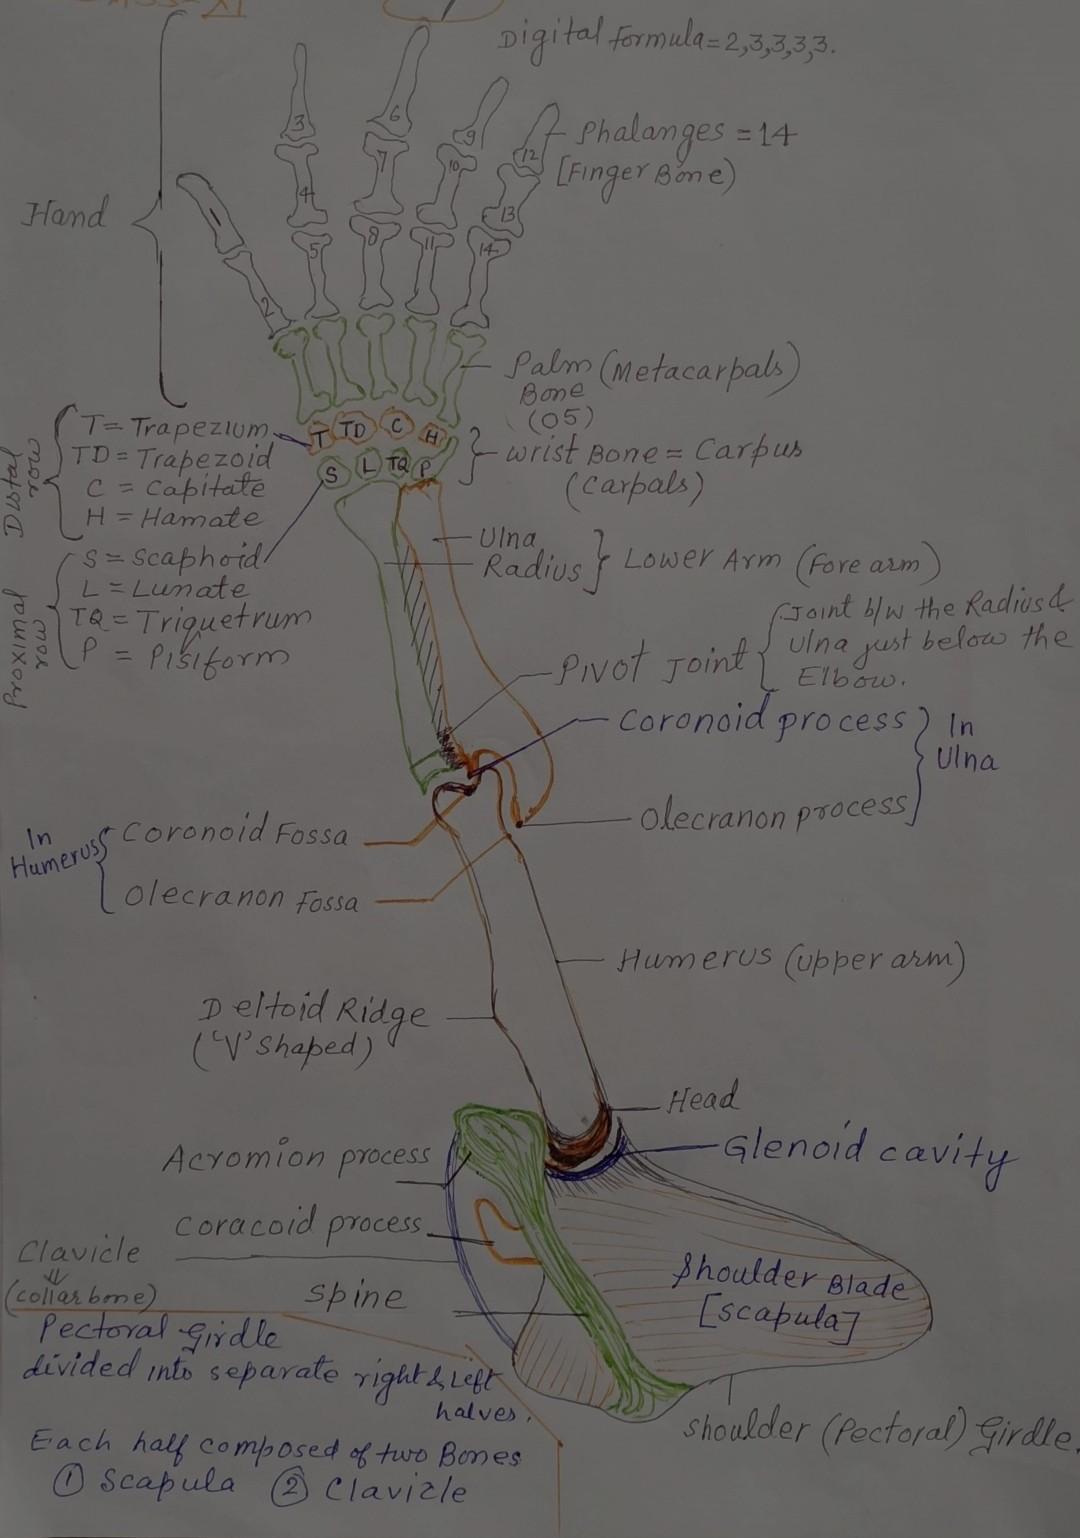 Digital formula = 2,3,3,3,3.
3
6
9
12
Phalanges = 14
[Finger Bone)
4
7
10
13
Hand
1
5
8
11
14
2
Palm (Metacarpals)
Bone
(05)
T = Trapezium
TD = Trapezoid
C = Capitate
H = Hamate
Distal row
T TD C H
S L TQ P
Wrist Bone = Carpus
(Carpals)
S = Scaphoid
L = Lunate
TQ = Triquetrum
P = Pisiform
Proximal row
Ulna
Radius } Lower Arm (Fore arm)
Pivot Joint
Joint b/w the Radius &
Ulna just below the
Elbow.
Coronoid process
Olecranon process
In
Ulna
In
Humerus
Coronoid Fossa
Olecranon Fossa
Humerus (upper arm)
Deltoid Ridge
("V" Shaped)
Head
Glenoid cavity
Acromion process
Coracoid process
Clavicle
⇓
(collar bone)
Spine
Shoulder Blade
[scapula]
Pectoral Girdle
divided into separate right & Left
halves.
Shoulder (Pectoral) Girdle.
Each half composed of two Bones
① Scapula ② Clavicle